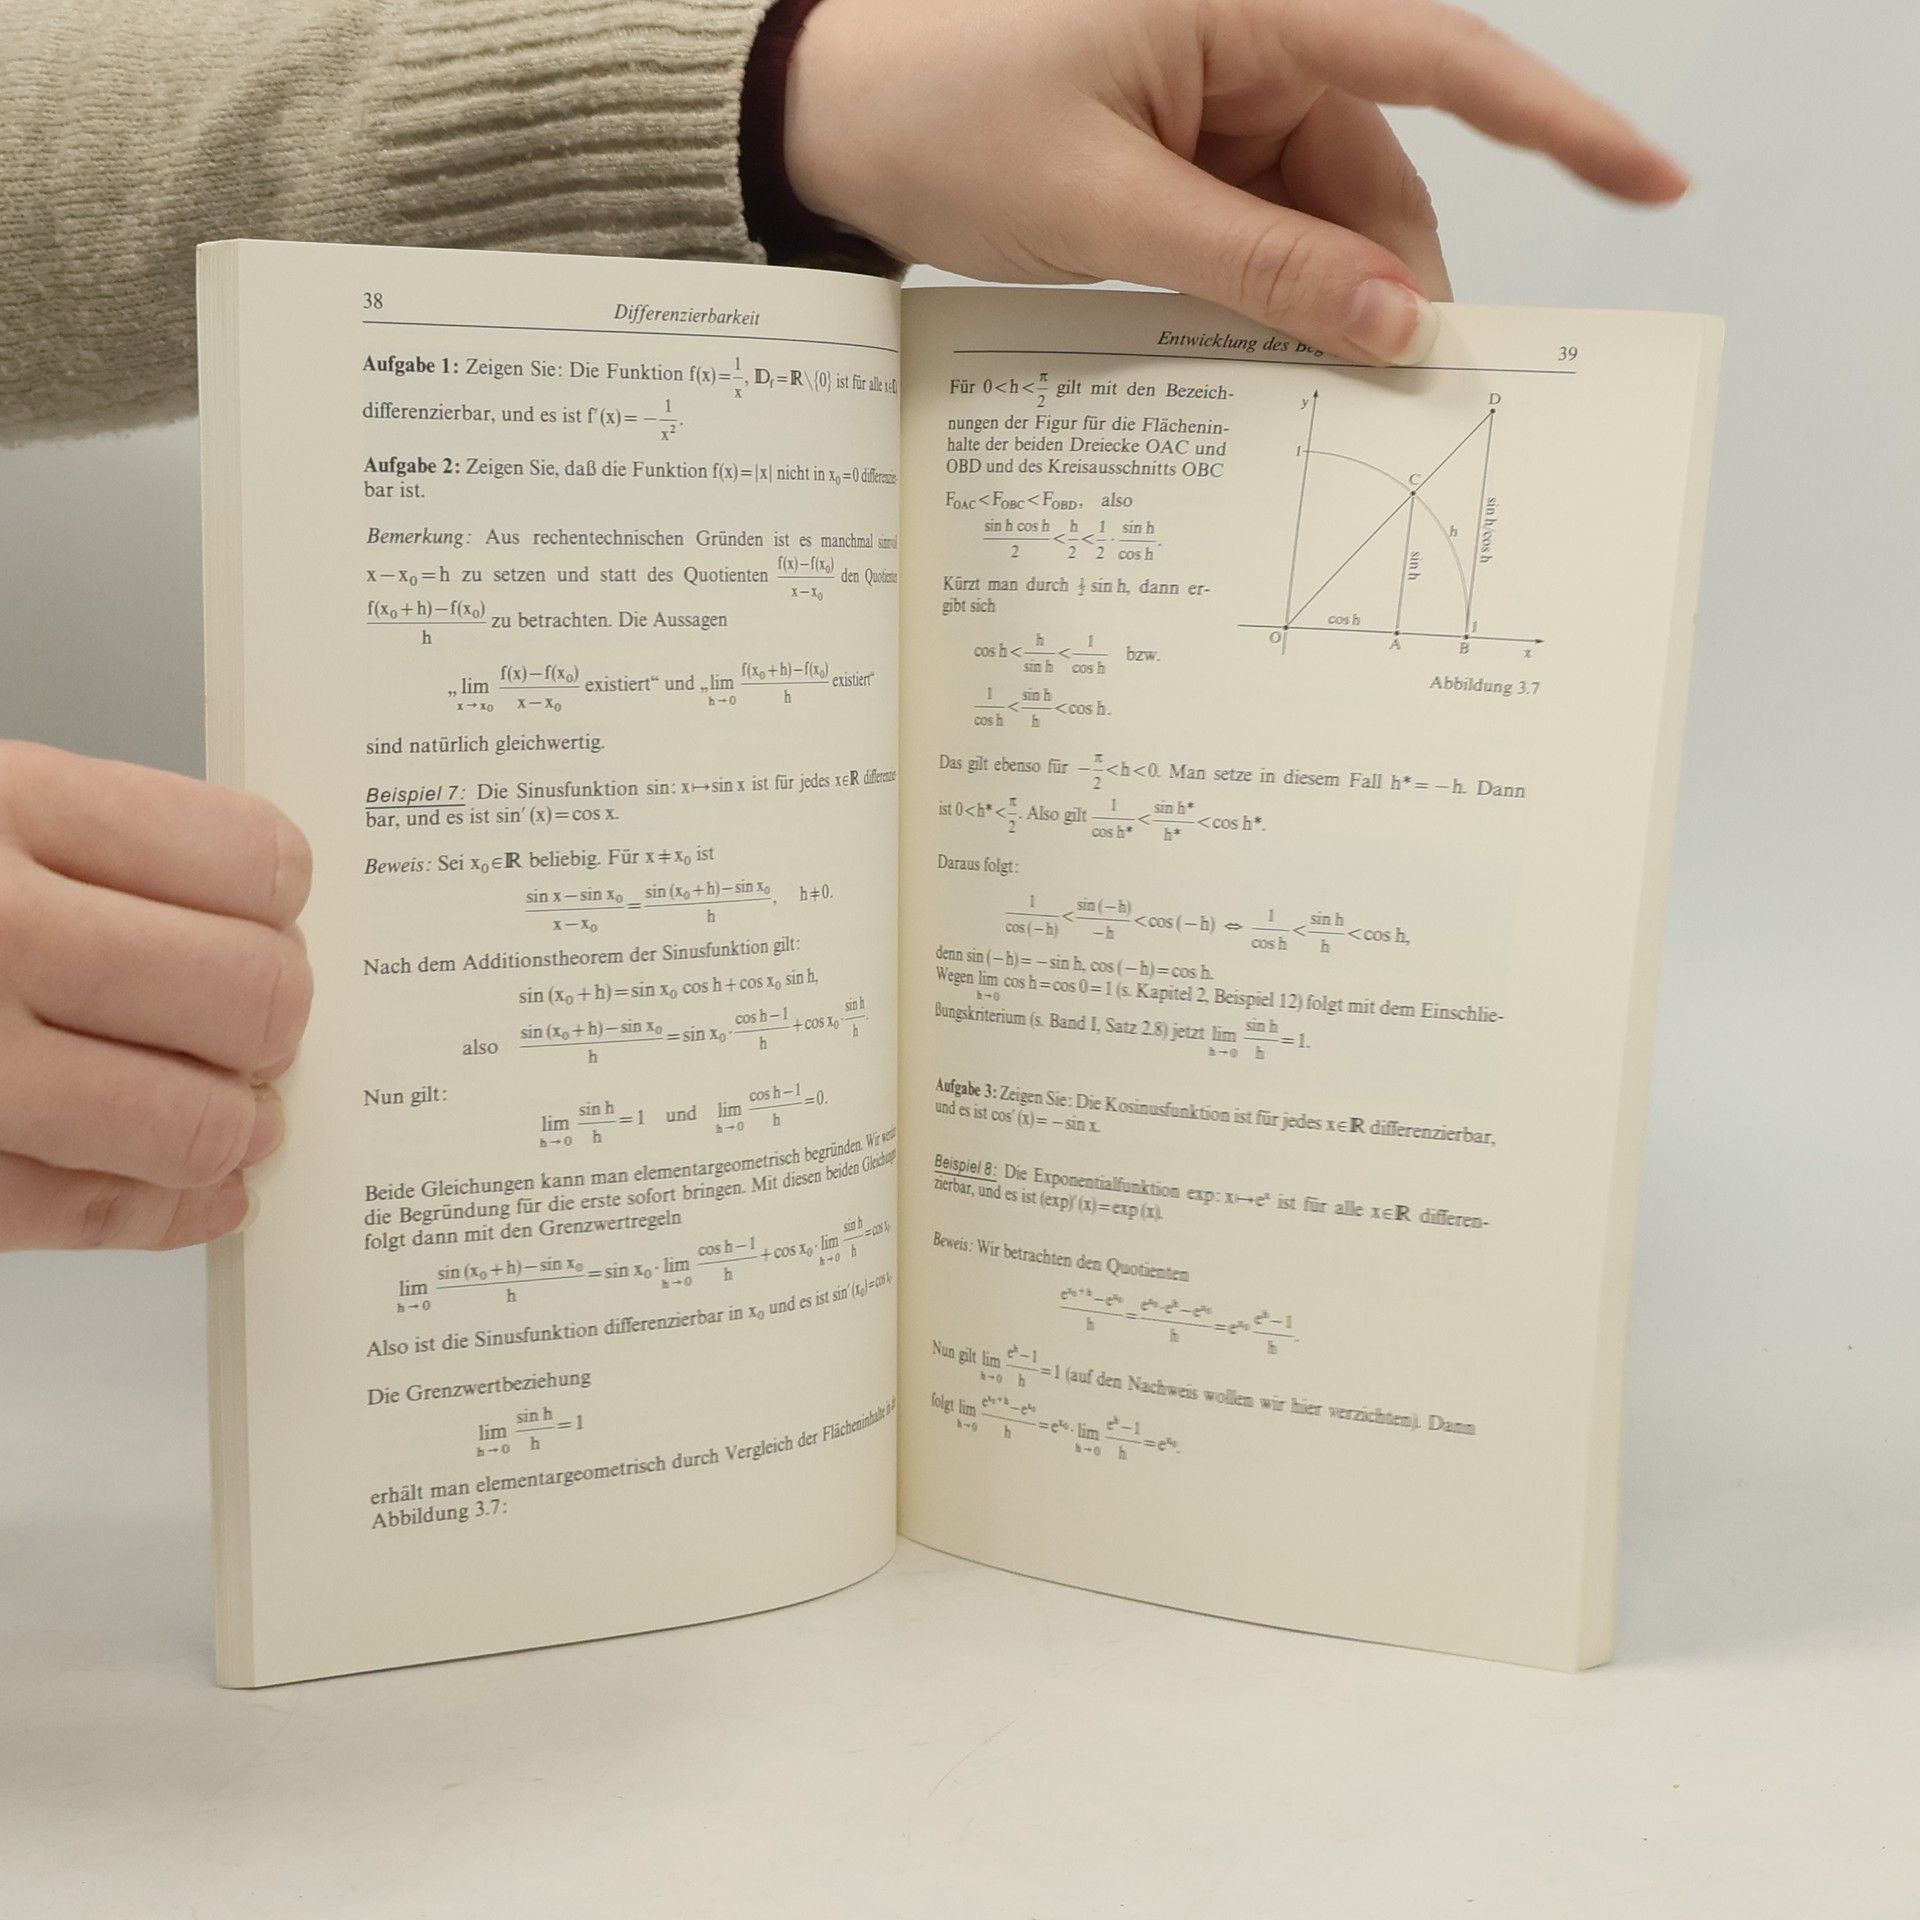 38
Differenzierbarkeit
Aufgabe 1: Zeigen Sie: Die Funktion f(x)=1/x, 𝔻f=ℝ\{0} ist für alle
differenzierbar, und es ist f′(x)=−1/x².
Aufgabe 2: Zeigen Sie, daß die Funktion f(x)=|x| nicht in x₀=0 differenzier-
bar ist.
Bemerkung: Aus rechentechnischen Gründen ist es manchmal sinnvoll
x−x₀=h zu setzen und statt des Quotienten (f(x)−f(x₀))/(x−x₀) den Quotienten
(f(x₀+h)−f(x₀))/h zu betrachten. Die Aussagen
„lim x→x₀ (f(x)−f(x₀))/(x−x₀) existiert“ und „lim h→0 (f(x₀+h)−f(x₀))/h existiert“
sind natürlich gleichwertig.
Beispiel 7: Die Sinusfunktion sin: x↦sin x ist für jedes x∈ℝ differenzier-
bar, und es ist sin′(x)=cos x.
Beweis: Sei x₀∈ℝ beliebig. Für x≠x₀ ist
(sin x−sin x₀)/(x−x₀)=(sin(x₀+h)−sin x₀)/h, h≠0.
Nach dem Additionstheorem der Sinusfunktion gilt:
sin(x₀+h)=sin x₀ cos h+cos x₀ sin h,
also (sin(x₀+h)−sin x₀)/h=sin x₀·(cos h−1)/h+cos x₀·sin h/h.
Nun gilt:
lim h→0 sin h/h=1 und lim h→0 (cos h−1)/h=0.
Beide Gleichungen kann man elementargeometrisch begründen. Wir werden
die Begründung für die erste sofort bringen. Mit diesen beiden Gleichungen
folgt dann mit den Grenzwertregeln
lim h→0 (sin(x₀+h)−sin x₀)/h=sin x₀·lim h→0 (cos h−1)/h+cos x₀·lim h→0 sin h/h=cos x₀
Also ist die Sinusfunktion differenzierbar in x₀ und es ist sin′(x₀)=cos x₀
Die Grenzwertbeziehung
lim h→0 sin h/h=1
erhält man elementargeometrisch durch Vergleich der Flächeninhalte in
Abbildung 3.7:
Entwicklung des
39
Für 0<h<π/2 gilt mit den Bezeich-
nungen der Figur für die Flächenin-
halte der beiden Dreiecke OAC und
OBD und des Kreisausschnitts OBC
F_OAC<F_OBC<F_OBD, also
(sin h cos h)/2<h/2<1/2·sin h/cos h.
Kürzt man durch ½ sin h, dann er-
gibt sich
cos h<h/sin h<1/cos h bzw.
1/cos h<sin h/h<cos h.
y
1
D
C
h
sin h
sin h/cos h
cos h
O
A
B
1
x
Abbildung 3.7
Das gilt ebenso für −π/2<h<0. Man setze in diesem Fall h*=−h. Dann
ist 0<h*<π/2. Also gilt 1/cos h*<sin h*/h*<cos h*.
Daraus folgt:
1/cos(−h)<sin(−h)/−h<cos(−h) ⇔ 1/cos h<sin h/h<cos h,
denn sin(−h)=−sin h, cos(−h)=cos h.
Wegen lim h→0 cos h=cos 0=1 (s. Kapitel 2, Beispiel 12) folgt mit dem Einschlie-
ßungskriterium (s. Band I, Satz 2.8) jetzt lim h→0 sin h/h=1.
Aufgabe 3: Zeigen Sie: Die Kosinusfunktion ist für jedes x∈ℝ differenzierbar,
und es ist cos′(x)=−sin x.
Beispiel 8: Die Exponentialfunktion exp: x↦eˣ ist für alle x∈ℝ differen-
zierbar, und es ist (exp)′(x)=exp(x).
Beweis: Wir betrachten den Quotienten
(e^(x₀+h)−e^x₀)/h=(e^x₀·e^h−e^x₀)/h=e^x₀ (e^h−1)/h.
Nun gilt lim h→0 (e^h−1)/h=1 (auf den Nachweis wollen wir hier verzichten). Dann
folgt lim h→0 (e^(x₀+h)−e^x₀)/h=e^x₀·lim h→0 (e^h−1)/h=e^x₀.